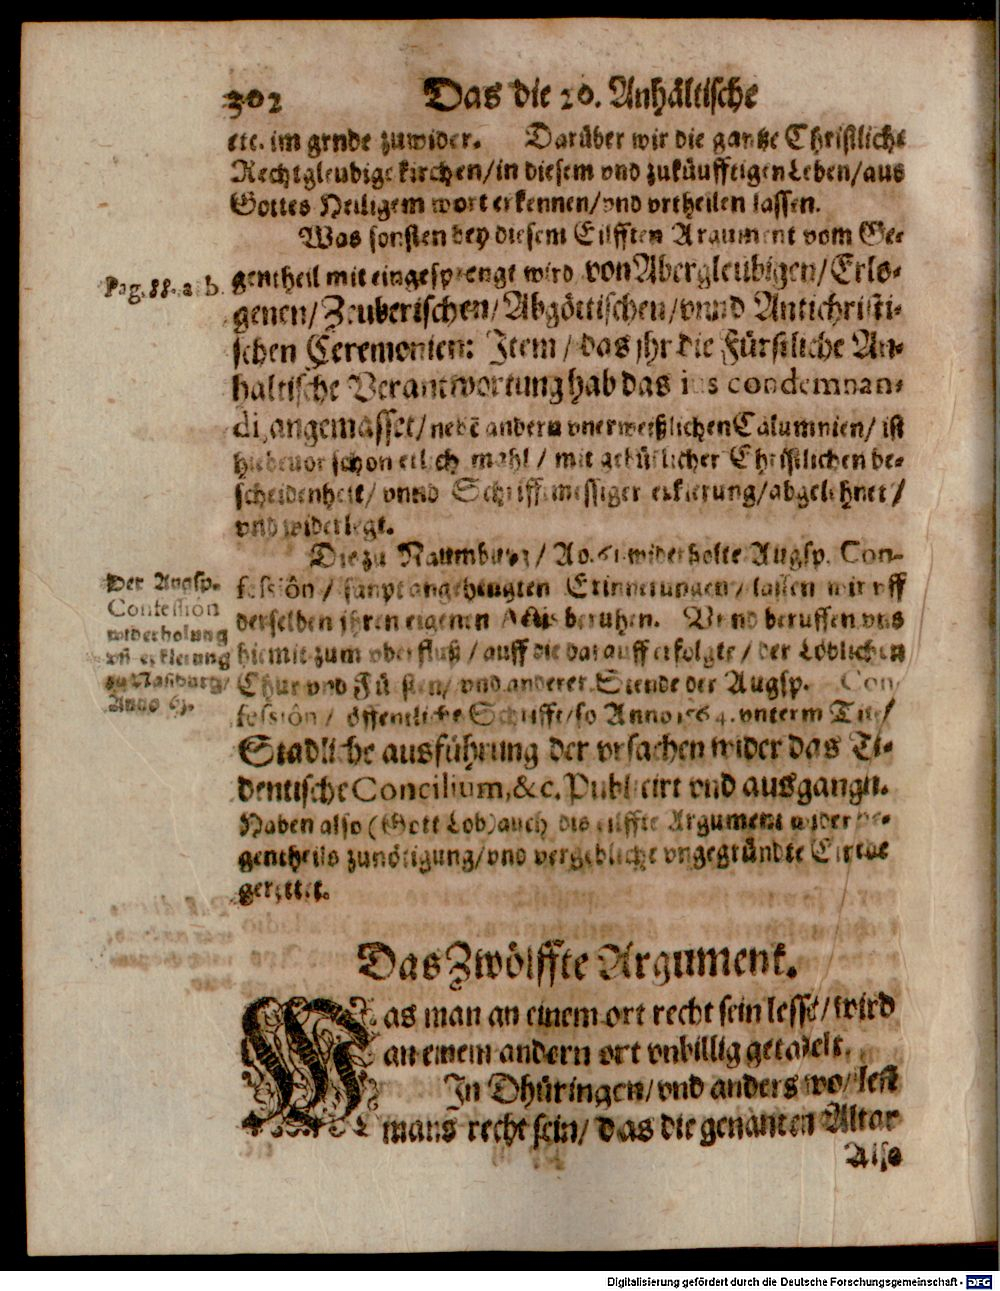 302 Das die 20. Anhältische
etc. im grnde zuwider. Darüber wir die gantze Christliche
Rechtgleubige kirchen/in diesem vnd zuküufftigen Leben/aus
Gottes Heiligem wort erkennen/vnd vrtheilen lassen.
Was sonsten bey diesem Eilfften Argument vom Ge-
Pag. 88. a. b.
gentheil mit eingesprengt wird von Abergleubigen/Erlo-
genen/Zeuberischen/Abgöttischen/vnnd Antichristi-
schen Ceremonien: Item/das ihr die Fürstliche An-
haltische Verantwortung hab das ius condemnan-
di, angemasset/nebē andern vnerweißlichen Calumnien/ist
hiebeuor schon etlich mahl/mit gebürlicher Christlichen be-
scheidenheit/vnnd Schrifftmessiger erklerung/abgelehnet/
vnd widerlegt.
Die zu Naumburg/Ao. 61 widerholte Augsp. Con-
Der Augsp.
Confession
widerholung
vñ erklerung
zu Naũburg/
Anno 61.
fession/sampt angehengten Erinnerungen/lassen wir vff
derselben ihren eigenen Actis beruhen. Vnnd beruffen vns
hiemit zum vberfluß/auff die darauff erfolgte/der Löblichen
Chur vnd Fürsten/vnd anderer Stende der Augsp. Con-
fession/öffentliche Schrifft/so Anno 1564. vnterm Tit/
Stadliche ausführung der vrsachen wider das Ti-
dentische Concilium, &c. Publicirt vnd ausgangn.
Haben also (Gott Lob) auch dis eilffte Argument wider ge-
gentheils zunötigung/vnd vergebliche vngegründte
gerettet.
Das Zwölffte Argument.
Was man an einem ort recht sein lesst/wird
an einem andern ort vnbillig getadelt.
In Dhüringen/vnd anders wo/lest
mans recht sein/das die genanten Altar
Also
Digitalisierung gefördert durch die Deutsche Forschungsgemeinschaft - DFG